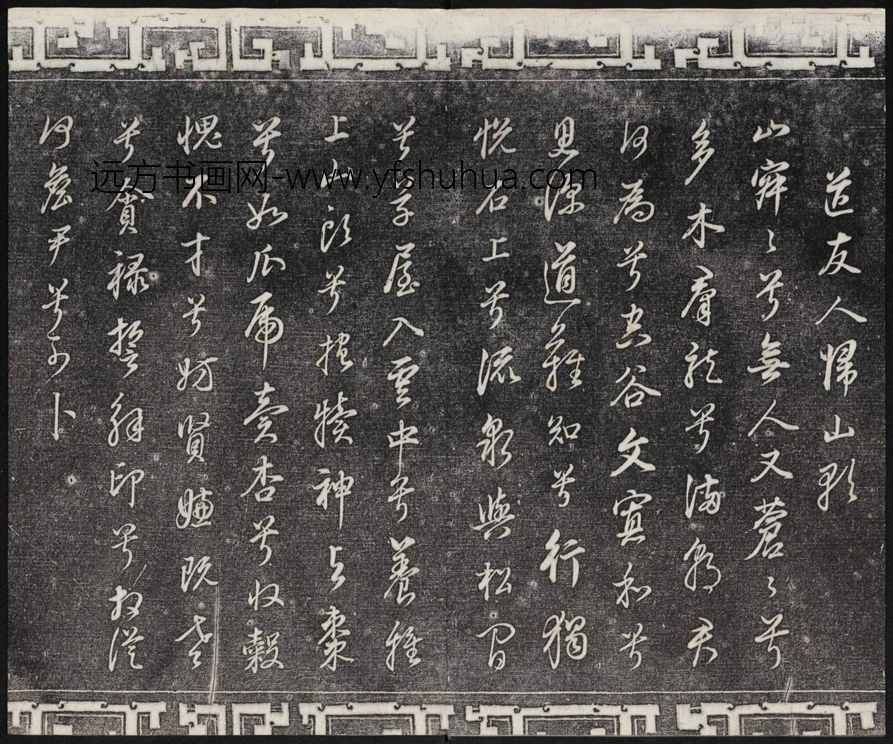 送友人歸山歌
山寂〻兮無人又蒼〻兮
多木羣龍兮滿朝君
何為兮空谷文寡和兮
思深道難知兮行獨
悅石上兮流泉與松間
兮草屋入雲中兮養雞
上山頭兮抱犢神與棗
兮如瓜虎賣杏兮收穀
愧不才兮妨賢嫌既老
兮貪祿誓解印兮相從
何詹尹兮可卜
远方书画网-www.yfshuhua.com